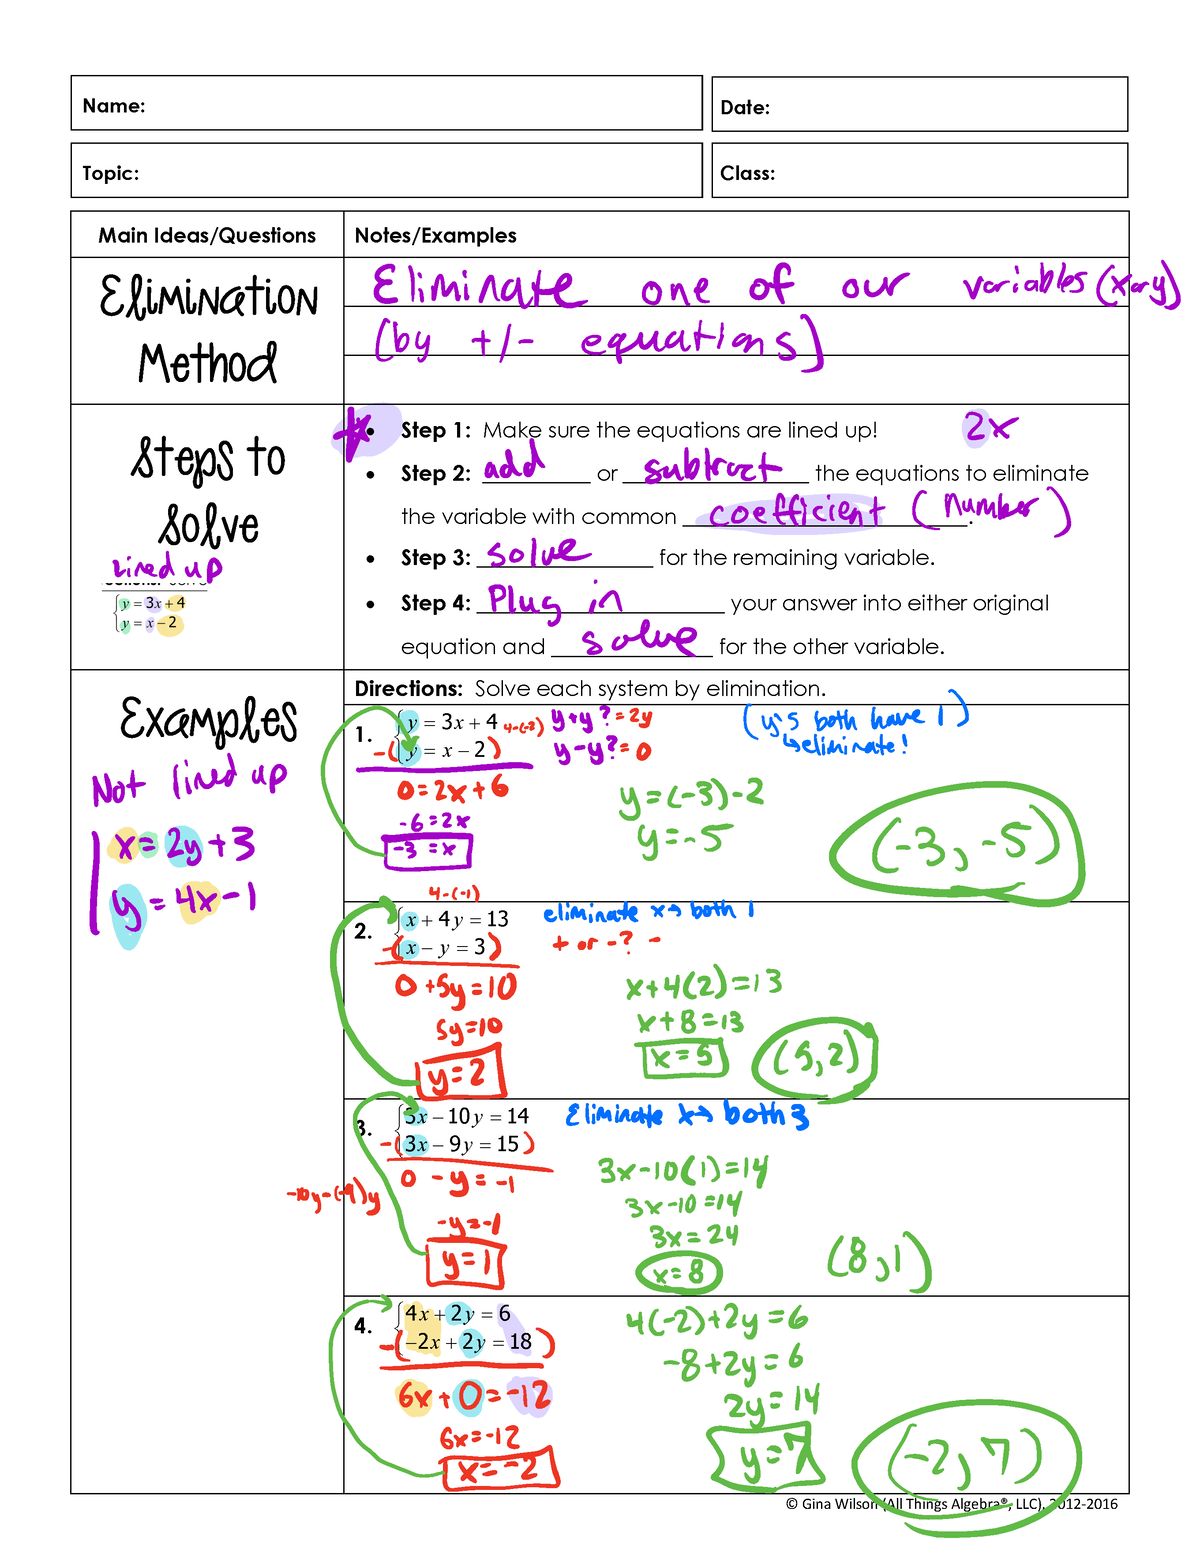 Name:
Date:
Topic:
Class:
Main Ideas/Questions
Notes/Examples
Elimination
Method
Eliminate one of our variables (x or y)
(by +/- equations)
Steps to
Solve
Lined up
y = 3x + 4
y = x - 2
• Step 1: Make sure the equations are lined up! 2x
• Step 2: add or subtract the equations to eliminate
the variable with common coefficient (number).
• Step 3: solve for the remaining variable.
• Step 4: Plug in your answer into either original
equation and solve for the other variable.
Examples
Not lined up
x = 2y + 3
y = 4x - 1
Directions: Solve each system by elimination.
1. y = 3x + 4 4-(-2)
-(y = x - 2)
0 = 2x + 6
-6 = 2x
-3 = x
y + y? = 2y
y - y? = 0
(y's both have 1)
↳ eliminate!
y = (-3) - 2
y = -5
(-3, -5)
4-(-1)
2. x + 4y = 13
-(x - y = 3)
0 + 5y = 10
5y = 10
y = 2
eliminate x → both 1
+ or -? -
x + 4(2) = 13
x + 8 = 13
x = 5
(5, 2)
3. 3x - 10y = 14
-(3x - 9y = 15)
0 - y = -1
-10y - (-9)y
-y = -1
y = 1
Eliminate x → both 3
3x - 10(1) = 14
3x - 10 = 14
3x = 24
x = 8
(8, 1)
4. 4x + 2y = 6
-(-2x + 2y = 18)
6x + 0 = -12
6x = -12
x = -2
4(-2) + 2y = 6
-8 + 2y = 6
2y = 14
y = 7
(-2, 7)
© Gina Wilson (All Things Algebra®, LLC), 2012-2016